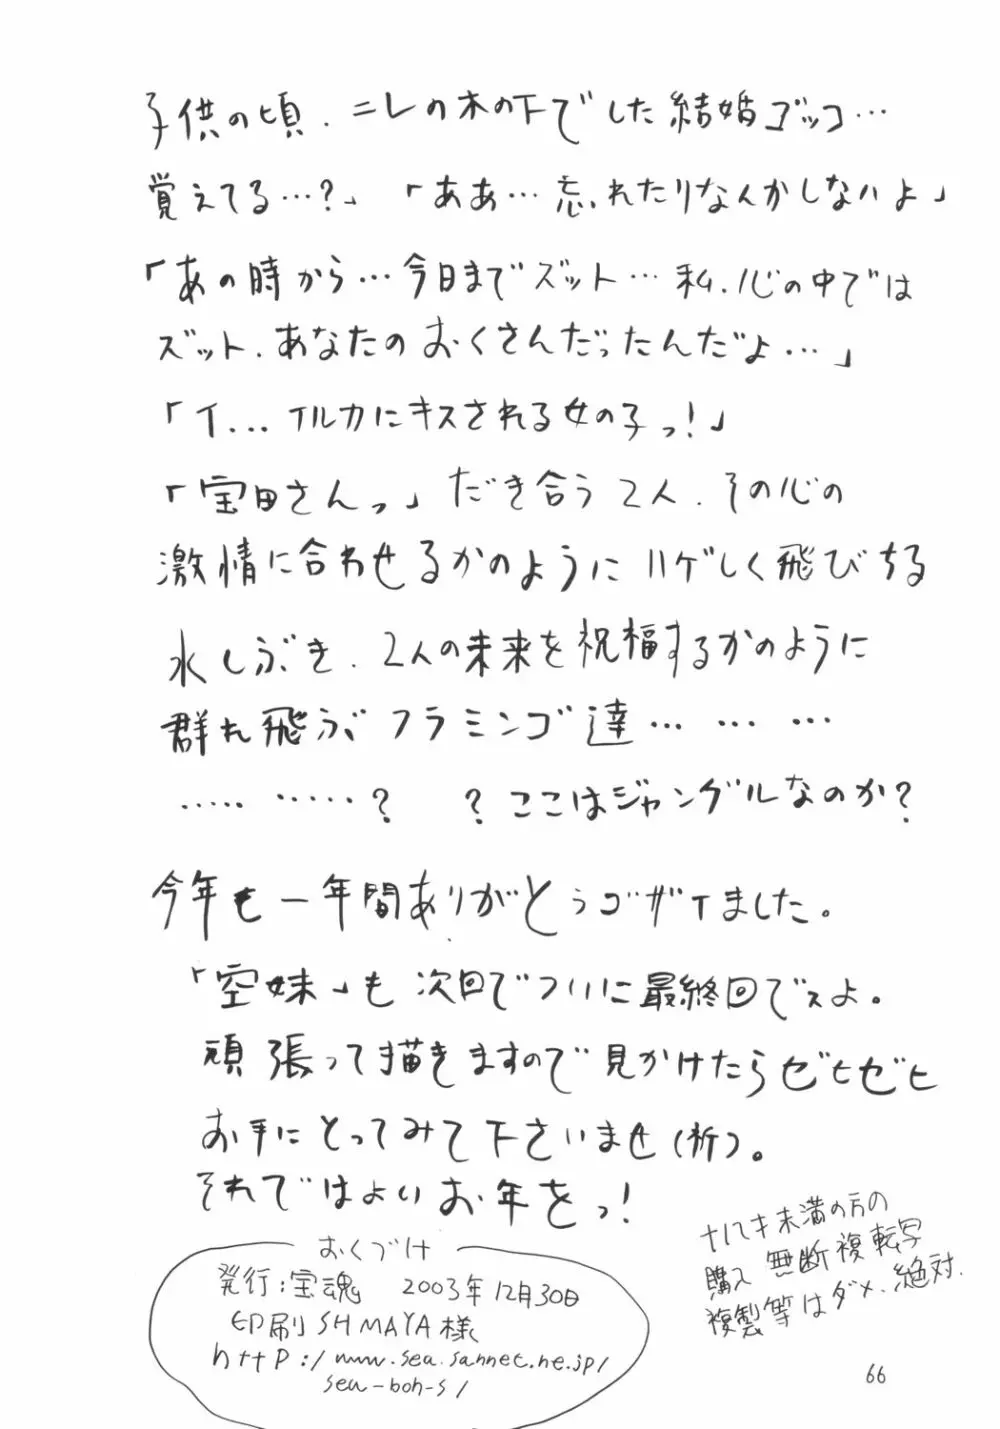 子供の頃、ニレの木の下でした結婚ゴッコ…
覚えてる…?」「ああ…忘れたりなんかしないよ」
「あの時から…今日までズット…私、心の中では
ズット、あなたのおくさんだったんだよ…」
「イ...イルカにキスされる女の子っ!」
「宝田さんっ」だき合う2人、その心の
激情に合わせるかのようにハゲしく飛びちる
水しぶき、2人の未来を祝福するかのように
群れ飛ぶフラミンゴ達… … …
…… ……? ?ここはジャングルなのか?
今年も一年間ありがとうゴザイました。
「空妹」も次回でついに最終回でスよ。
頑張って描きますので見かけたらゼヒゼヒ
お手にとってみて下さいませ(祈)。
それではよいお年をっ!
おくづけ
発行:宝魂 2003年12月30日
印刷 SHMAYA様
http:/www.sea.sannet.ne.jp/
sea-boh-s/
十八才未満の方の
購入 無断複転写
複製等はダメ、絶対.
66